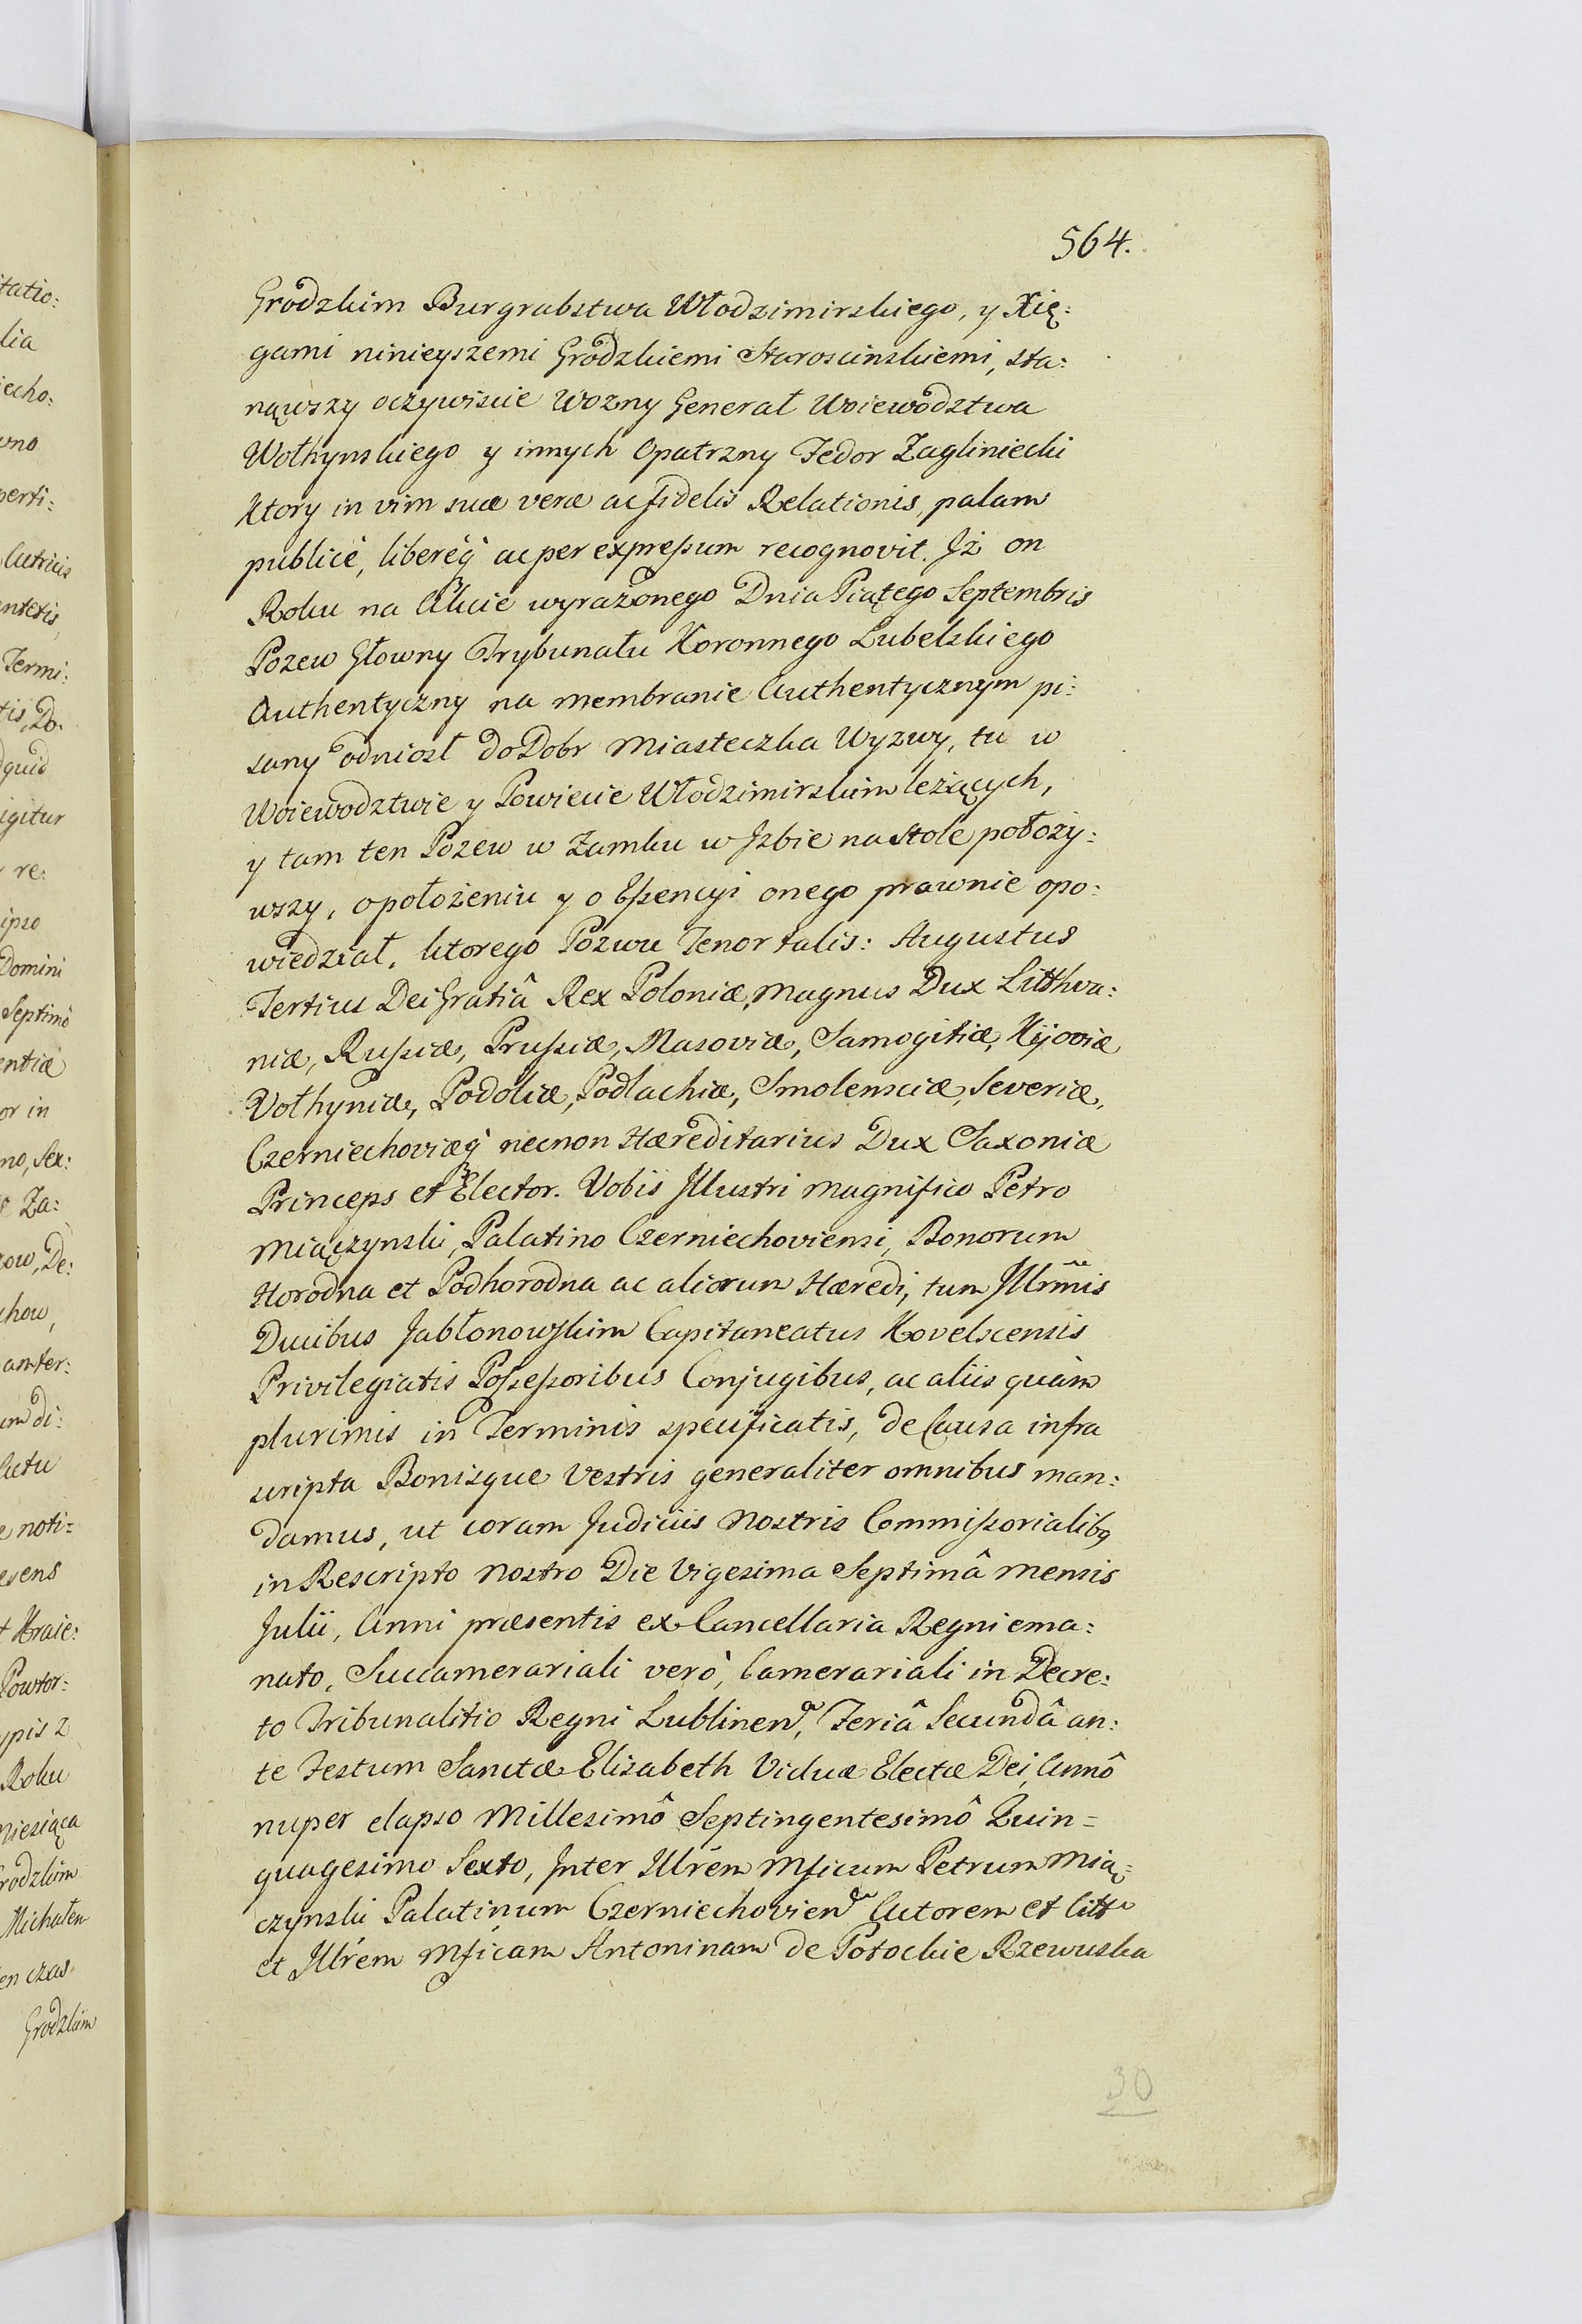 564.
Grodzkim Burgrabstwa Włodzimirskiego, y Xię:
gami ninieyszemi Grodzkiemi Staroscinskiemi, sta:
nąwszy oczywiscie Wozny Generał Woiewodztwa
Wołhynskiego y innych Opatrzny Fedor Zagliniecki
Ktory in vim suæ veræ ac fidelis Relationis, palam
publicè, libereq́ ac per expreſsum recognovit. Jż on
Roku na Akcie wyrażonego Dnia Piątego Septembris
Pozew Głowny Trybunału Koronnego Lubelskiego
Authentyczny na membranie Authentycznym pi:
sany odniosł do Dobr Miasteczka Wyzwy, tu w
Woiewodztwie y Powiecie Włodzimirskim leżących,
y tam ten Pozew w Zamku w Jzbie na Stole położy:
wszy, o położeniu y o Eſsencyi onego prawnie opo:
wiedział, ktorego Pozwu Tenor talis: Augustus
Tertius Dei Gratiâ Rex Poloniæ, Magnus Dux Litthva:
niæ, Ruſsiæ, Pruſsiæ, Masoviæ, Samogitiæ, Kijoviæ
Vołhyniæ, Podoliæ, Podlachiæ, Smolensciæ, Severiæ,
Czerniechoviæq́ necnon Hæreditarius Dux Saxoniæ
Princeps et Elector. Vobis Jllustri Magnifico Petro
Miączynski, Palatino Czerniechoviensi, Bonorum
Horodna et Podhorodna ac aliorum Hæredi, tum Jllrm̃is
Ducibus Jabłonowskim Capitaneatus Kovelscensis
Privilegiatis Poſseſsoribus Conjugibus, ac aliis quàm
plurimis in Terminis specificatis, de Causa infra
scripta Bonisque Vestris generaliter omnibus man:
damus, ut coram Judiciis Nostris Commiſsorialibꝯ
in Rescripto Nostro Die Vigesima Septimâ Mensis
Julii, Anni præsentis ex Cancellaria Regni ema:
nato, Succamerariali verò, Camerariali in Decre:
to Tribunalitio Regni Lublinen, Feriâ Secundâ an:
te Festum Sanctæ Elisabeth Viduæ Electæ Dei, Annô
nuper elapso Millesimô Septingentesimô Quin=
quagesimo Sexto, Jnter Jllrem Mficum Petrum Mią:
czynski Palatinum Czerniechovien Actorem et Citt
et Jllrem Mficam Antoninam de Potockie Rzewuska
30